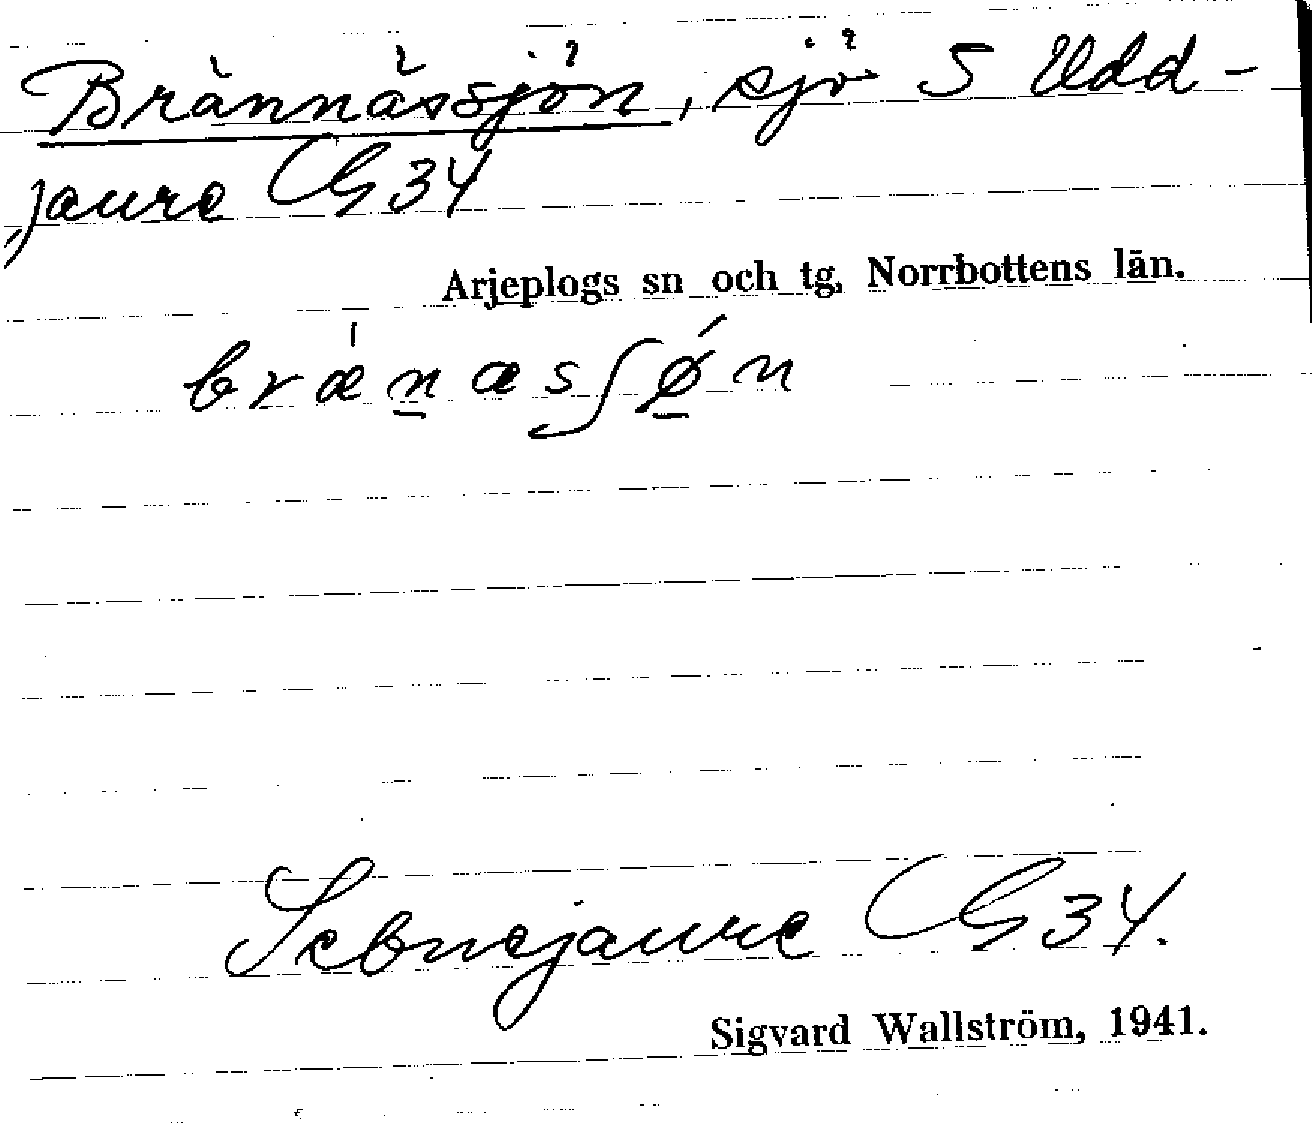 Brännässjön, sjö S Udd-
jaure G 34
Arjeplogs sn och tg, Norrbottens län.
bræ̍n̲æsʃǿ̲n
Sebnejaure G 34.
Sigvard Wallström, 1941.